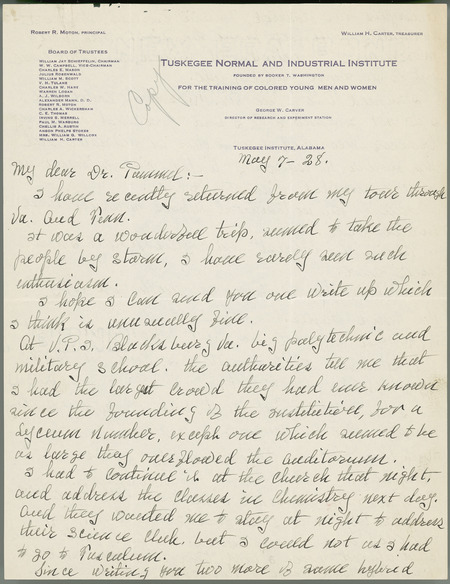 ROBERT R. MOTON, PRINCIPAL
WILLIAM H. CARTER, TREASURER
BOARD OF TRUSTEES
WILLIAM JAY SCHIEFFELIN, CHAIRMAN
W. W. CAMPBELL, VICE-CHAIRMAN
CHARLES E. MASON
JULIUS ROSENWALD
WILLIAM M. SCOTT
V. H. TULANE
CHARLES W. HARE
WARREN LOGAN
A. J. WILBORN
ALEXANDER MANN, D. D.
ROBERT R. MOTON
CHARLES A. WICKERSHAM
C. E. THOMAS
IRVING S. MERRELL
PAUL M. WARBURG
CHELLIS A. AUSTIN
ANSON PHELPS STOKES
MRS. WILLIAM G. WILLCOX
WILLIAM H. CARTER
Copy
TUSKEGEE NORMAL AND INDUSTRIAL INSTITUTE
FOUNDED BY BOOKER T. WASHINGTON
FOR THE TRAINING OF COLORED YOUNG MEN AND WOMEN
GEORGE W. CARVER
DIRECTOR OF RESEARCH AND EXPERIMENT STATION
TUSKEGEE INSTITUTE, ALABAMA
May 7- 28.
My dear Dr. Pammel:-
I have recently returned from my tour through
Va. and Tenn.
It was a wonderful trip, seemed to take the
people by storm, I have rarely seen such
enthusiasm.
I hope I can send you one write up which
I think is unusually fine.
At V.P.I. Blacksburg Va. big polytechnic and
military school. the authorities tell me that
I had the largest crowd they had ever known
since the founding of the institution, for a
Lyceum number, except one which seemed to be
as large they overflowed the auditorium.
I had to continue it at the church that night,
and address the classes in Chemistry next day.
and they wanted me to stay at night to address
their Science Club. but I could not as I had
to go to Tusculum.
Since writing you two more of same hybrid